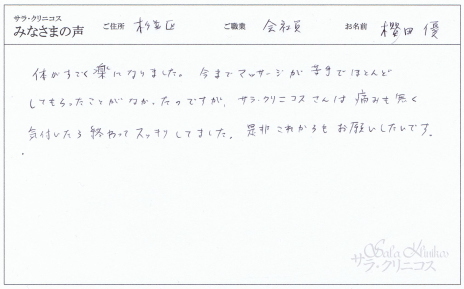 サラ・クリニコス
みなさまの声 ご住所 杉並区 ご職業 会社員 お名前 櫻田 優
体がすごく楽になりました。今までマッサージが苦手でほとんど
してもらったことがなかったのですが、サラ・クリニコスさんは痛みも無く
気付いたら終わってスッキリしてました。是非これからもお願いしたいです。
Sala Klinikos
サラ・クリニコス